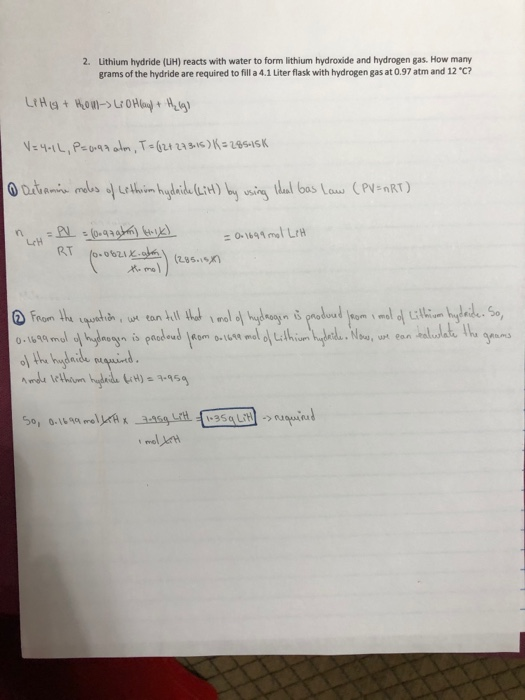 2. Lithium hydride (LiH) reacts with water to form lithium hydroxide and hydrogen gas. How many
grams of the hydride are required to fill a 4.1 Liter flask with hydrogen gas at 0.97 atm and 12 °C?
LiH(s) + H2O(l) -> LiOH(aq) + H2(g)
V=4.1L, P=0.97 atm, T=(12+273.15)K=285.15K
① Determine moles of Lethium hydride (LiH) by using Ideal Gas Law (PV=nRT)
n LiH = PV/RT = (0.97atm) (4.1L) / (0.0821 L.atm/K.mol) (285.15K) = 0.1699 mol LiH
② From the equation, we can till that 1 mol of hydrogyn is produced from 1 mol of Lithium hydride. So,
0.1699 mol of hydrogyn is produced from 0.1699 mol of Lithium hydride. Now, we can calculate the grams
of the hydride required.
1 mole lethium hydride (LiH) = 7.95g
So, 0.1699 mol LiH x 7.95g LiH / 1 mol LiH = 1.35g LiH -> required